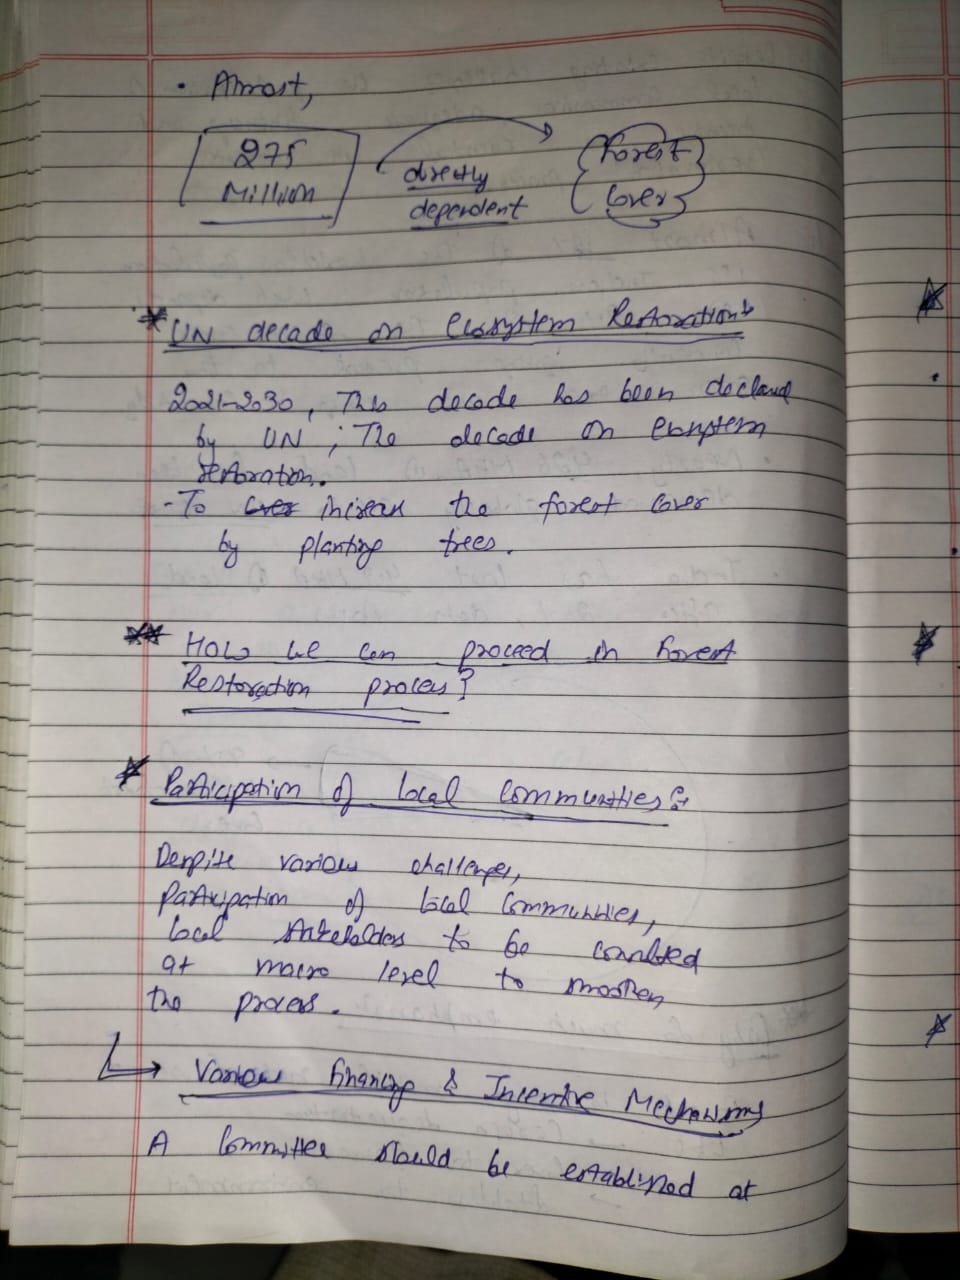 • Almost,
275 Million
directly dependent
Forest Cover
* UN decade on Ecosystem Restoration:
2021-2030, This decade has been declared
by UN ; The decade on Ecosystem
restoration.
- To increase the forest cover
by planting trees.
** How we can proceed in Forest
Restoration process?
* Participation of local Communities :-
Despite various challenges,
Participation of local Communities,
local stakeholders to be consulted
at macro level to smoothen
the process.
↳ Various financing & Incentive Mechanisms
A Committee should be established at